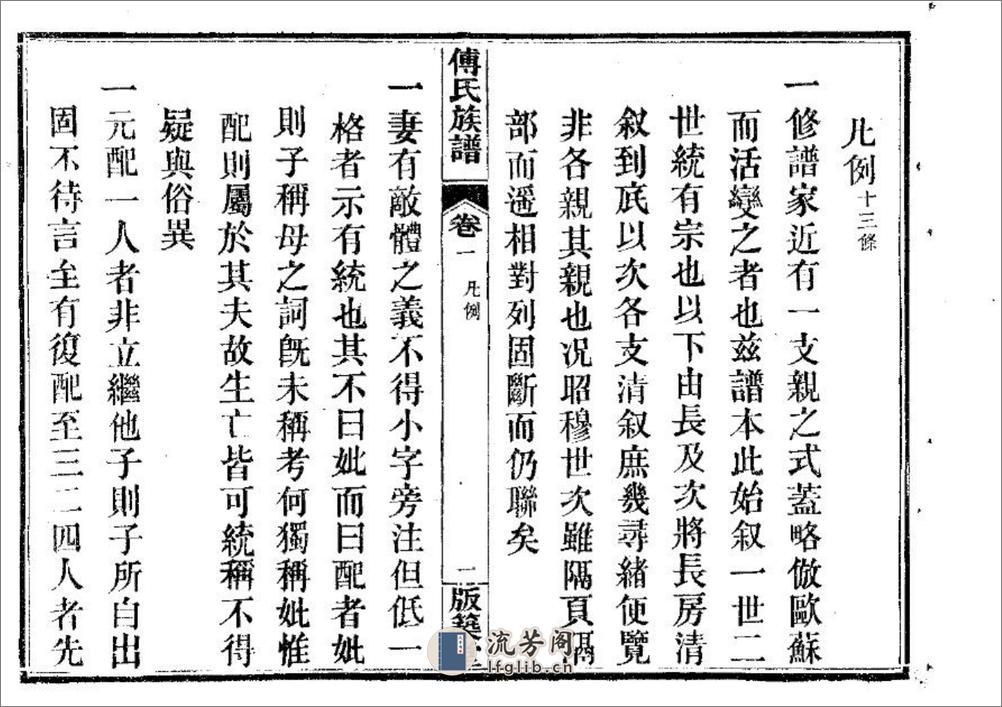 凡例十三條
一修譜家近有一支親之式葢略倣歐蘇
而活變之者也兹譜本此始叙一世二
世統有宗也以下由長及次將長房清
叙到底以次各支清叙庶幾尋緒便覽
非各親其親也况昭穆世次雖隔頁隔
部而遥相對列固斷而仍聯矣
傅氏族譜 卷一 凡例 一 版築
一妻有敵體之義不得小字旁注但低一
格者示有統也其不曰妣而曰配者妣
則子稱母之詞旣未稱考何獨稱妣惟
配則屬於其夫故生亡皆可統稱不得
疑與俗異
一元配一人者非立繼他子則子所自出
固不待言至有復配至三二四人者先
流芳阁
lfglib.cn